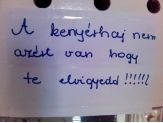 A kenyérhaj nem
azért van hogy
te elvigyedd !!!!!!